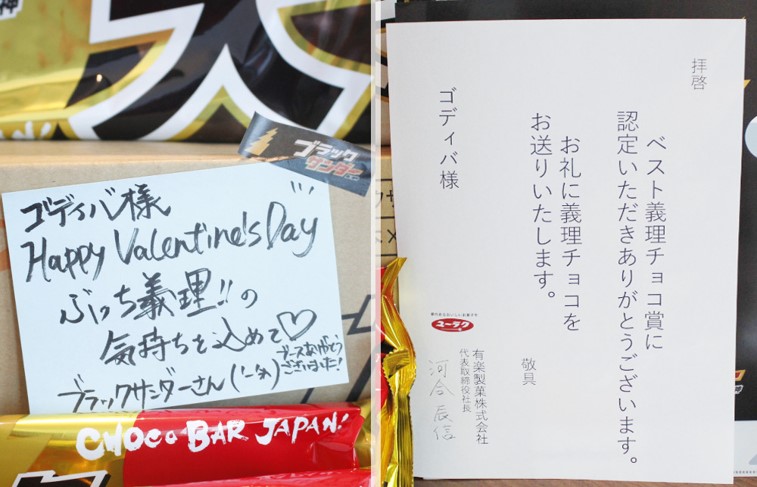 神
ブラック
サンダー
ゴディバ様
Happy Valentine's Day
ぶっち義理!!の
気持ちを込めて♡
ブースありがとう
ございました!
ブラックサンダーさん
CHOCO BAR JAPAN!
拝啓
ベスト義理チョコ賞に
認定いただきありがとうございます。
お礼に義理チョコを
お送りいたします。
敬具
ゴディバ様
ユーラク
有楽製菓株式会社
代表取締役社長
河合辰信